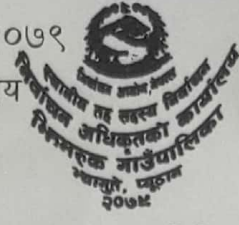 ०७९
य
निर्वाचन आयोग, नेपाल
स्थानीय तह सदस्य निर्वाचन
निर्वाचन अधिकृतको कार्यालय
झिमरुक गाउँपालिका
भ्यागुते, प्यूठान
२०७९